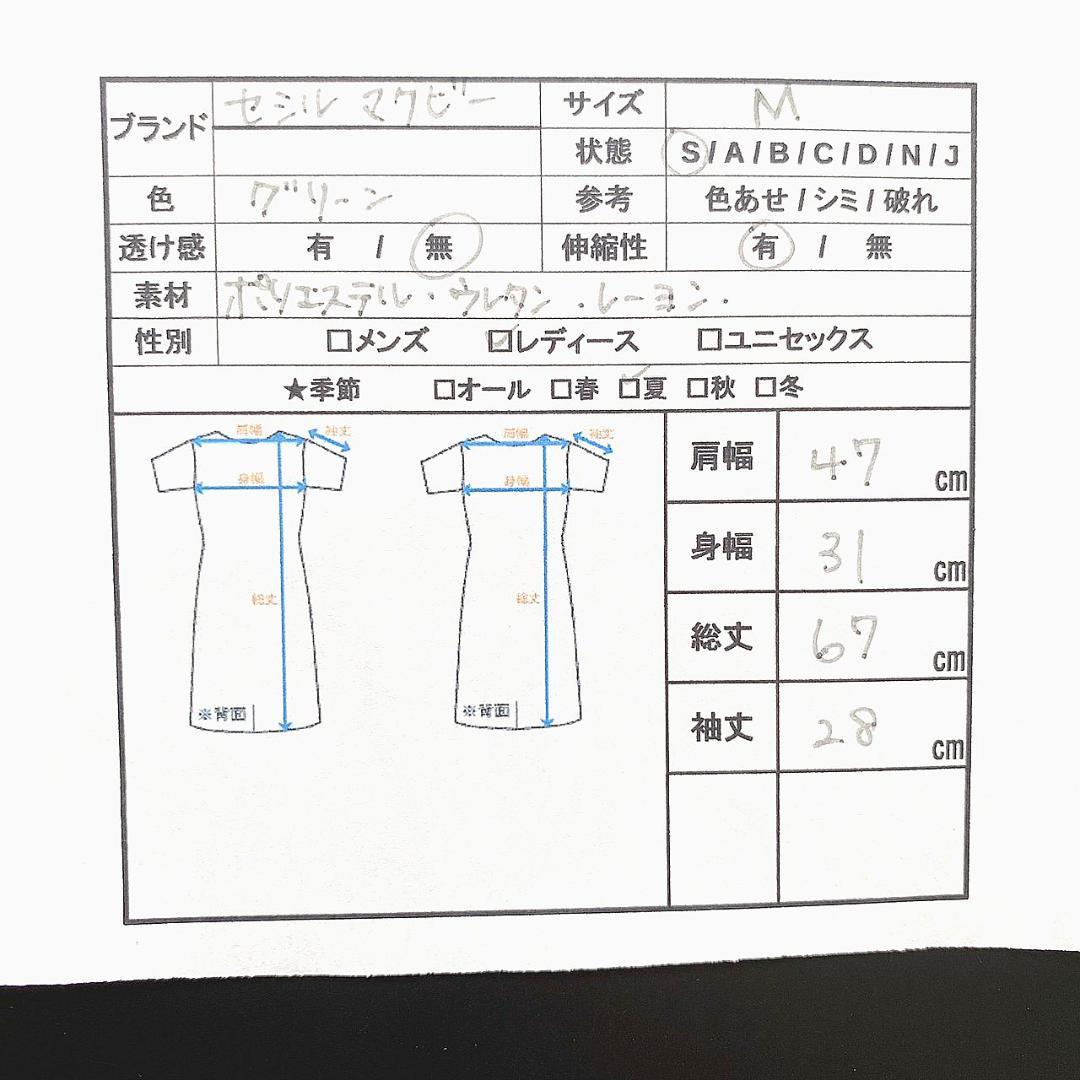 ブランド セシルマクビー サイズ M
状態 S / A / B / C / D / N / J
色 グリーン 参考 色あせ / シミ / 破れ
透け感 有 / 無 伸縮性 有 / 無
素材 ポリエステル・ウレタン・レーヨン.
性別 □メンズ □レディース □ユニセックス
★季節 □オール □春 □夏 □秋 □冬
肩幅 袖丈 肩幅 袖丈
身幅 身幅
総丈 総丈
※背面 ※背面
肩幅 47 cm
身幅 31 cm
総丈 67 cm
袖丈 28 cm